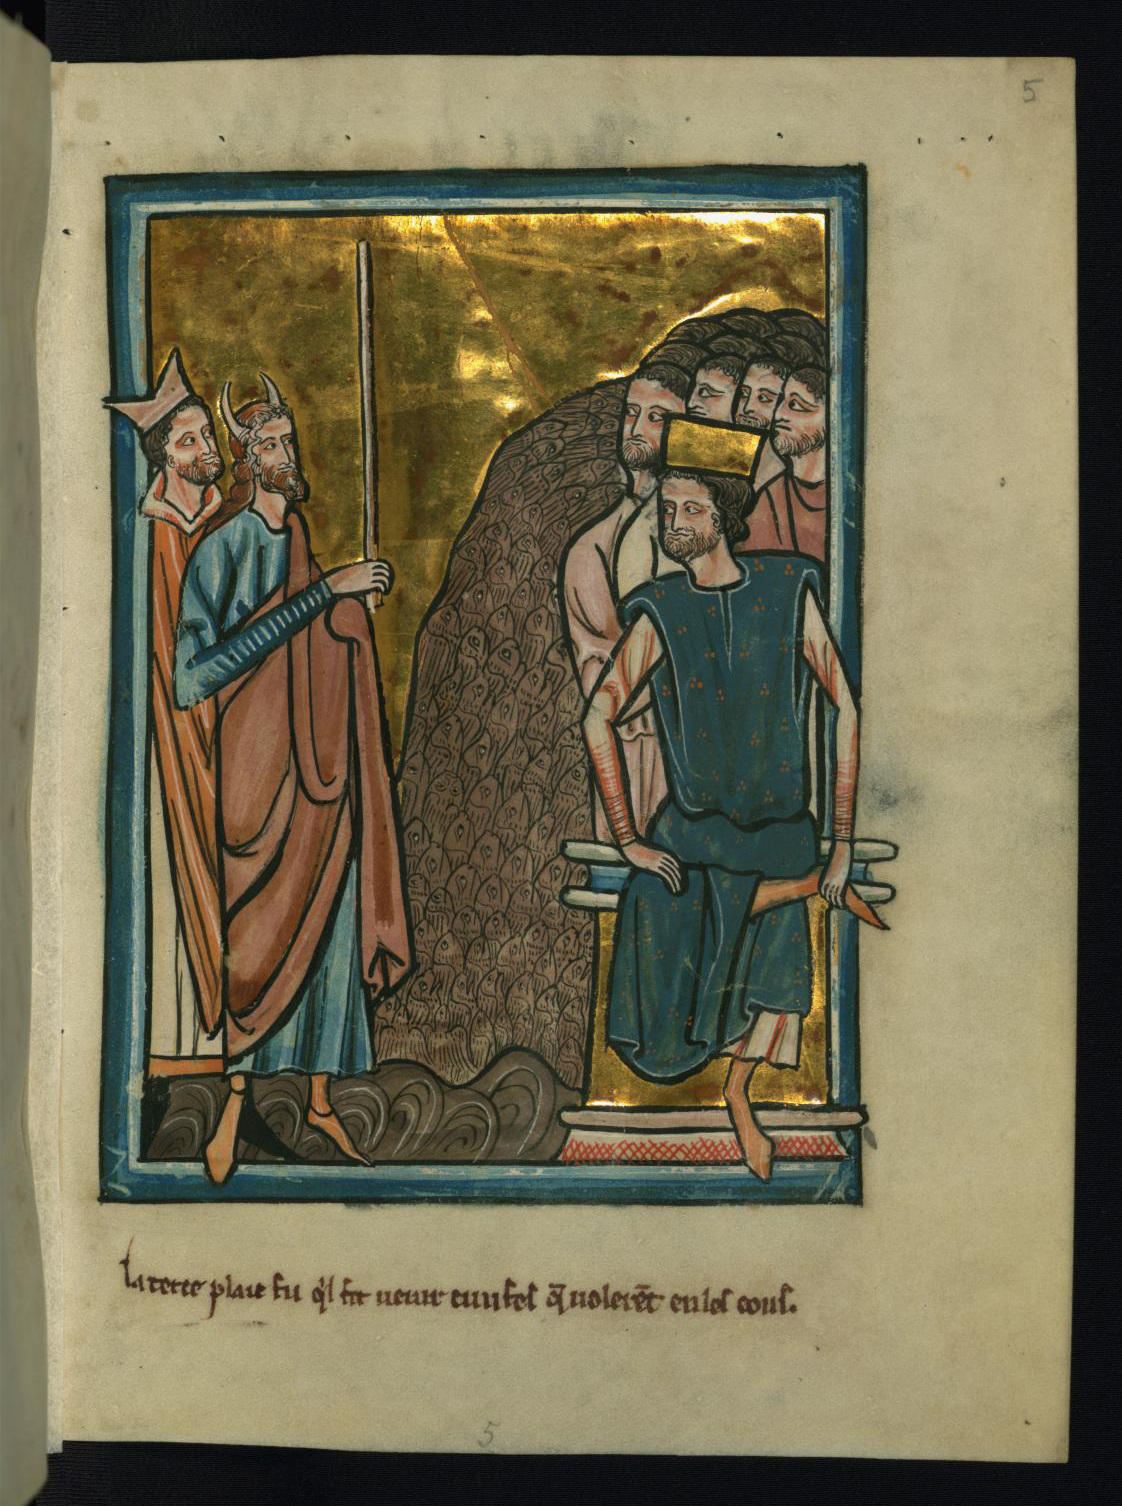 5
la terce plaie fu q'l fit uenir cunfes q̄ uolerēt en les eouſ.
5